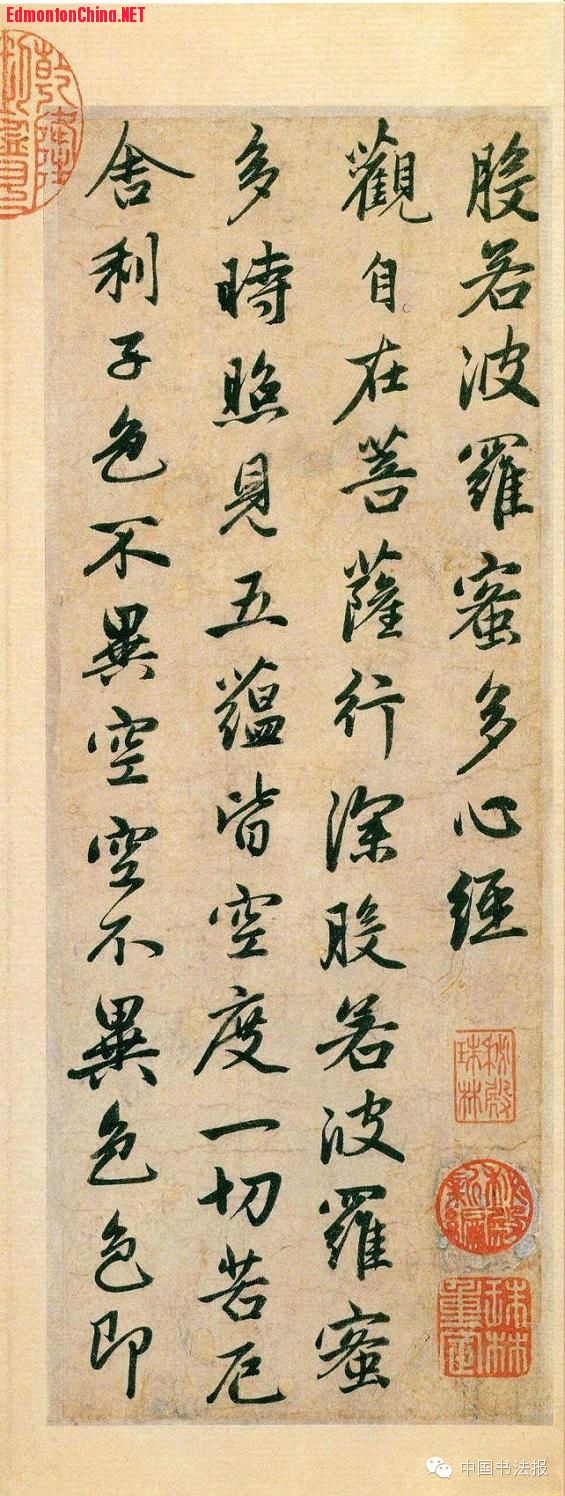 EdmontonChina.NET
般若波羅蜜多心經
觀自在菩薩行深般若波羅蜜
多時照見五蘊皆空度一切苦厄
舍利子色不異空空不異色色即
秘殿
珠林
秘殿
新編
珠林
重定
乾隆
中国书法报